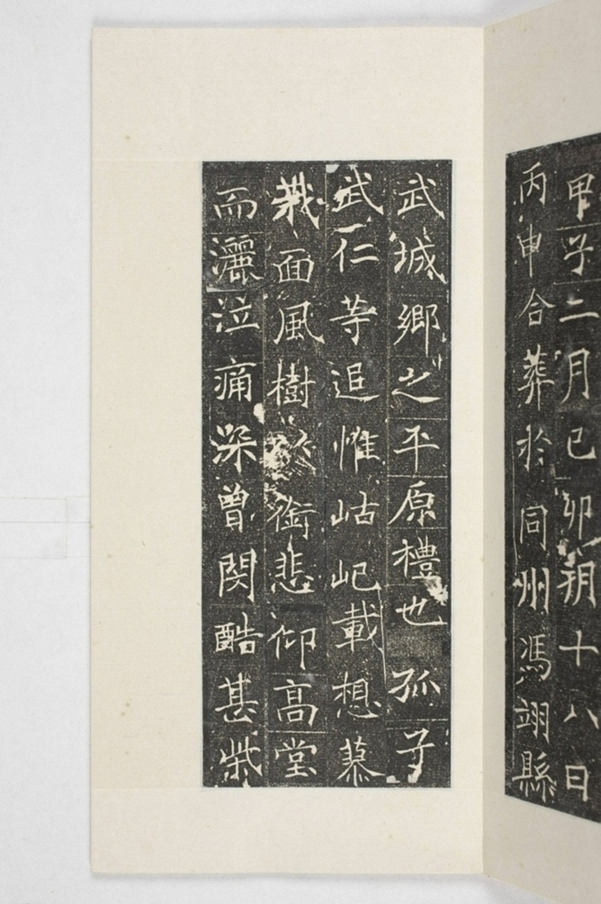 甲子二月己卯朔十八日
丙申合葬於同州馮翊縣
武城鄉之平原禮也孤子
武仁等追惟岵屺載想慕
莪面風樹銜悲仰高堂
而灑泣痛深曾閔酷甚柴